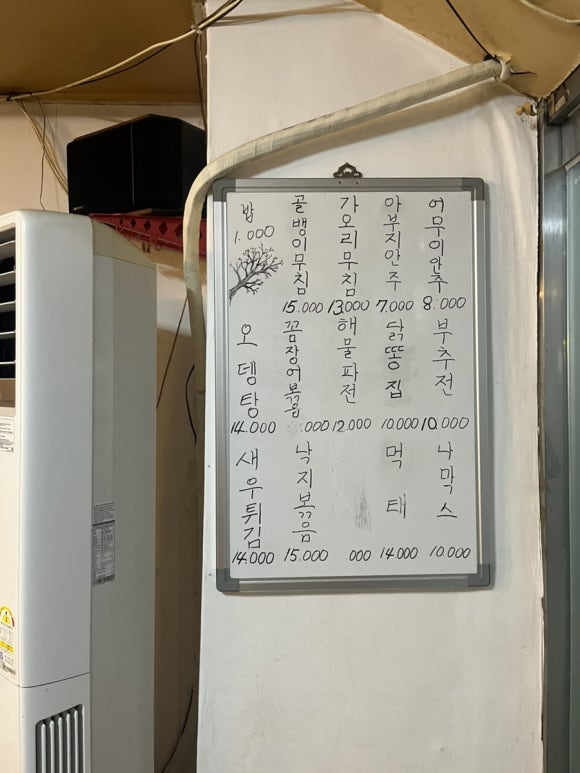 밥
1.000
골뱅이무침
15.000
가오리무침
13.000
아부지안주
7.000
어무이안주
8.000
오뎅탕
14.000
꼼장어볶음
.000
해물파전
12.000
닭똥집
10.000
부추전
10.000
새우튀김
14.000
낙지볶음
15.000
000
먹태
14.000
나막스
10.000